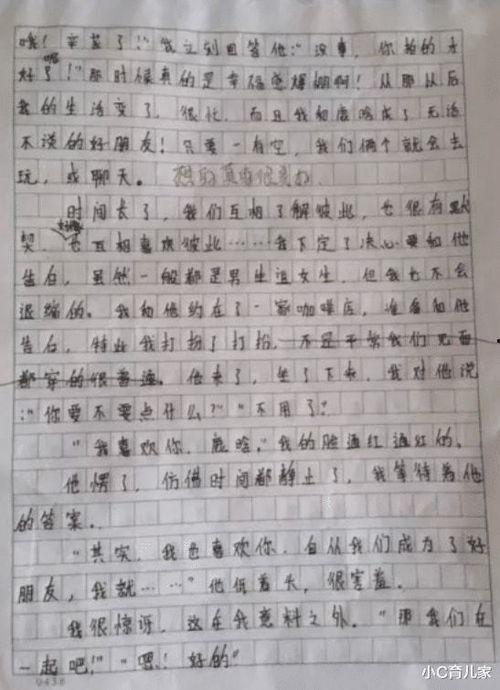 哦！辛苦了！”我立刻回答他：“没事，你拍的太
好了喔！”那时候真的是幸福感爆棚啊！从那以后
我的生活变了，很忙，而且我和鹿晗成了无话
不谈的好朋友！只要一有空，我们俩个就会去
玩，或聊天。想的真
时间长了，我们互相了解彼此，也很有默
契，也互相喜欢彼此……我下定了决心要和他
告白，虽然一般都是男生追女生，但我也不会
退缩的。我和他约在了一家咖啡店，准备和他
告白，特此我打扮了打扮，不是平常我们见面
都穿的很普通。他来了，坐了下来，我对他说
：“你要不要点什么？”“不用了”
“我喜欢你，鹿晗。”我的脸通红通红的。
他愣了，仿佛时间都静止了，我等待着他
的答案。
“其实，我也喜欢你，自从我们成为了好
朋友，我就……”他低着头，很害羞。
我很惊讶，这在我意料之外。“那我们在
一起吧！”“嗯！好的”
0438
小C育儿家